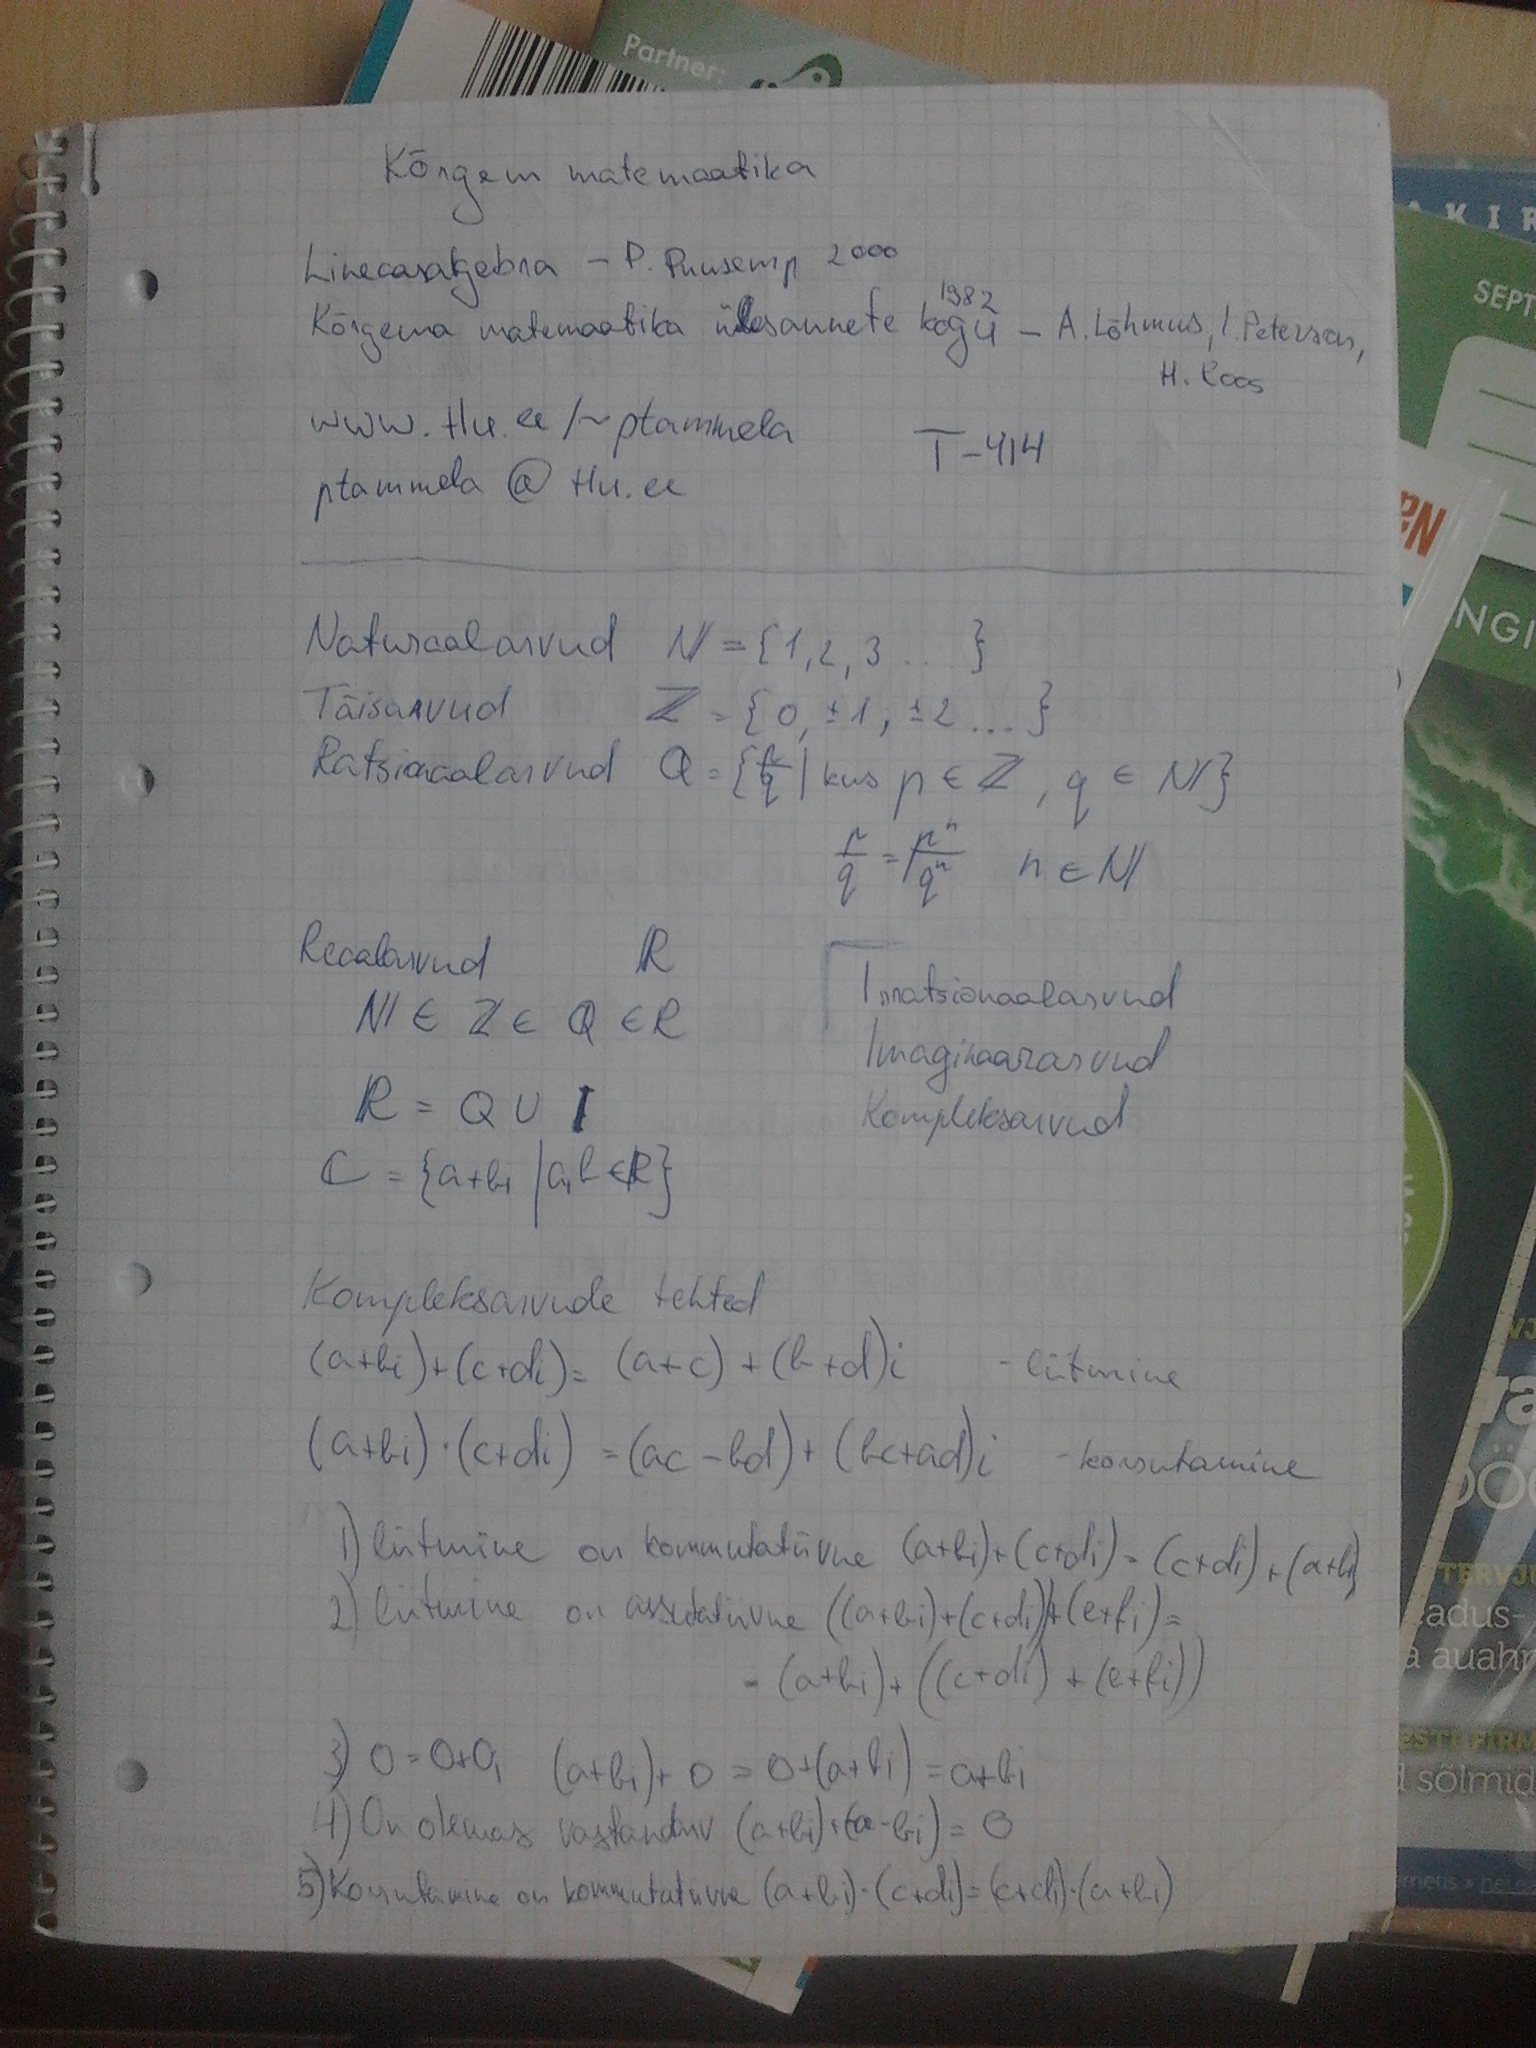 Partner:
Kõrgem matemaatika
Lineaaralgebra – P. Puusemp 2000
1982
Kõrgema matemaatika ülesannete kogu – A. Lõhmus, I. Petersen,
H. Roos
www.tlu.ee/~ptammela
T-414
ptammela@tlu.ee
Naturaalarvud ℕ = {1, 2, 3 ... }
Täisarvud ℤ = {0, ±1, ±2 ... }
Ratsionaalarvud ℚ = {p/q | kus p ∈ ℤ, q ∈ ℕ}
p/q = pⁿ/qⁿ n ∈ ℕ
Reaalarvud ℝ
ℕ ∈ ℤ ∈ ℚ ∈ ℝ
ℝ = ℚ ∪ I
ℂ = {a+bi | a, b ∈ ℝ}
Irratsionaalarvud
Imaginaararvud
Kompleksarvud
Kompleksarvude tehted
(a+bi)+(c+di) = (a+c) + (b+d)i - liitmine
(a+bi)·(c+di) = (ac-bd) + (bc+ad)i - korrutamine
1) liitmine on kommutatiivne (a+bi)+(c+di) = (c+di)+(a+bi)
2) liitmine on assotatiivne ((a+bi)+(c+di))+(e+fi) =
= (a+bi)+((c+di)+(e+fi))
3) 0 = 0+0i (a+bi)+0 = 0+(a+bi) = a+bi
4) On olemas vastandarv (a+bi)+(-a-bi) = 0
5) Korrutamine on kommutatiivne (a+bi)·(c+di) = (c+di)·(a+bi)
AKIR
SEPT
NGI
TERVJU
adus-
a auahn
EESTI FIRM
d sõlmid